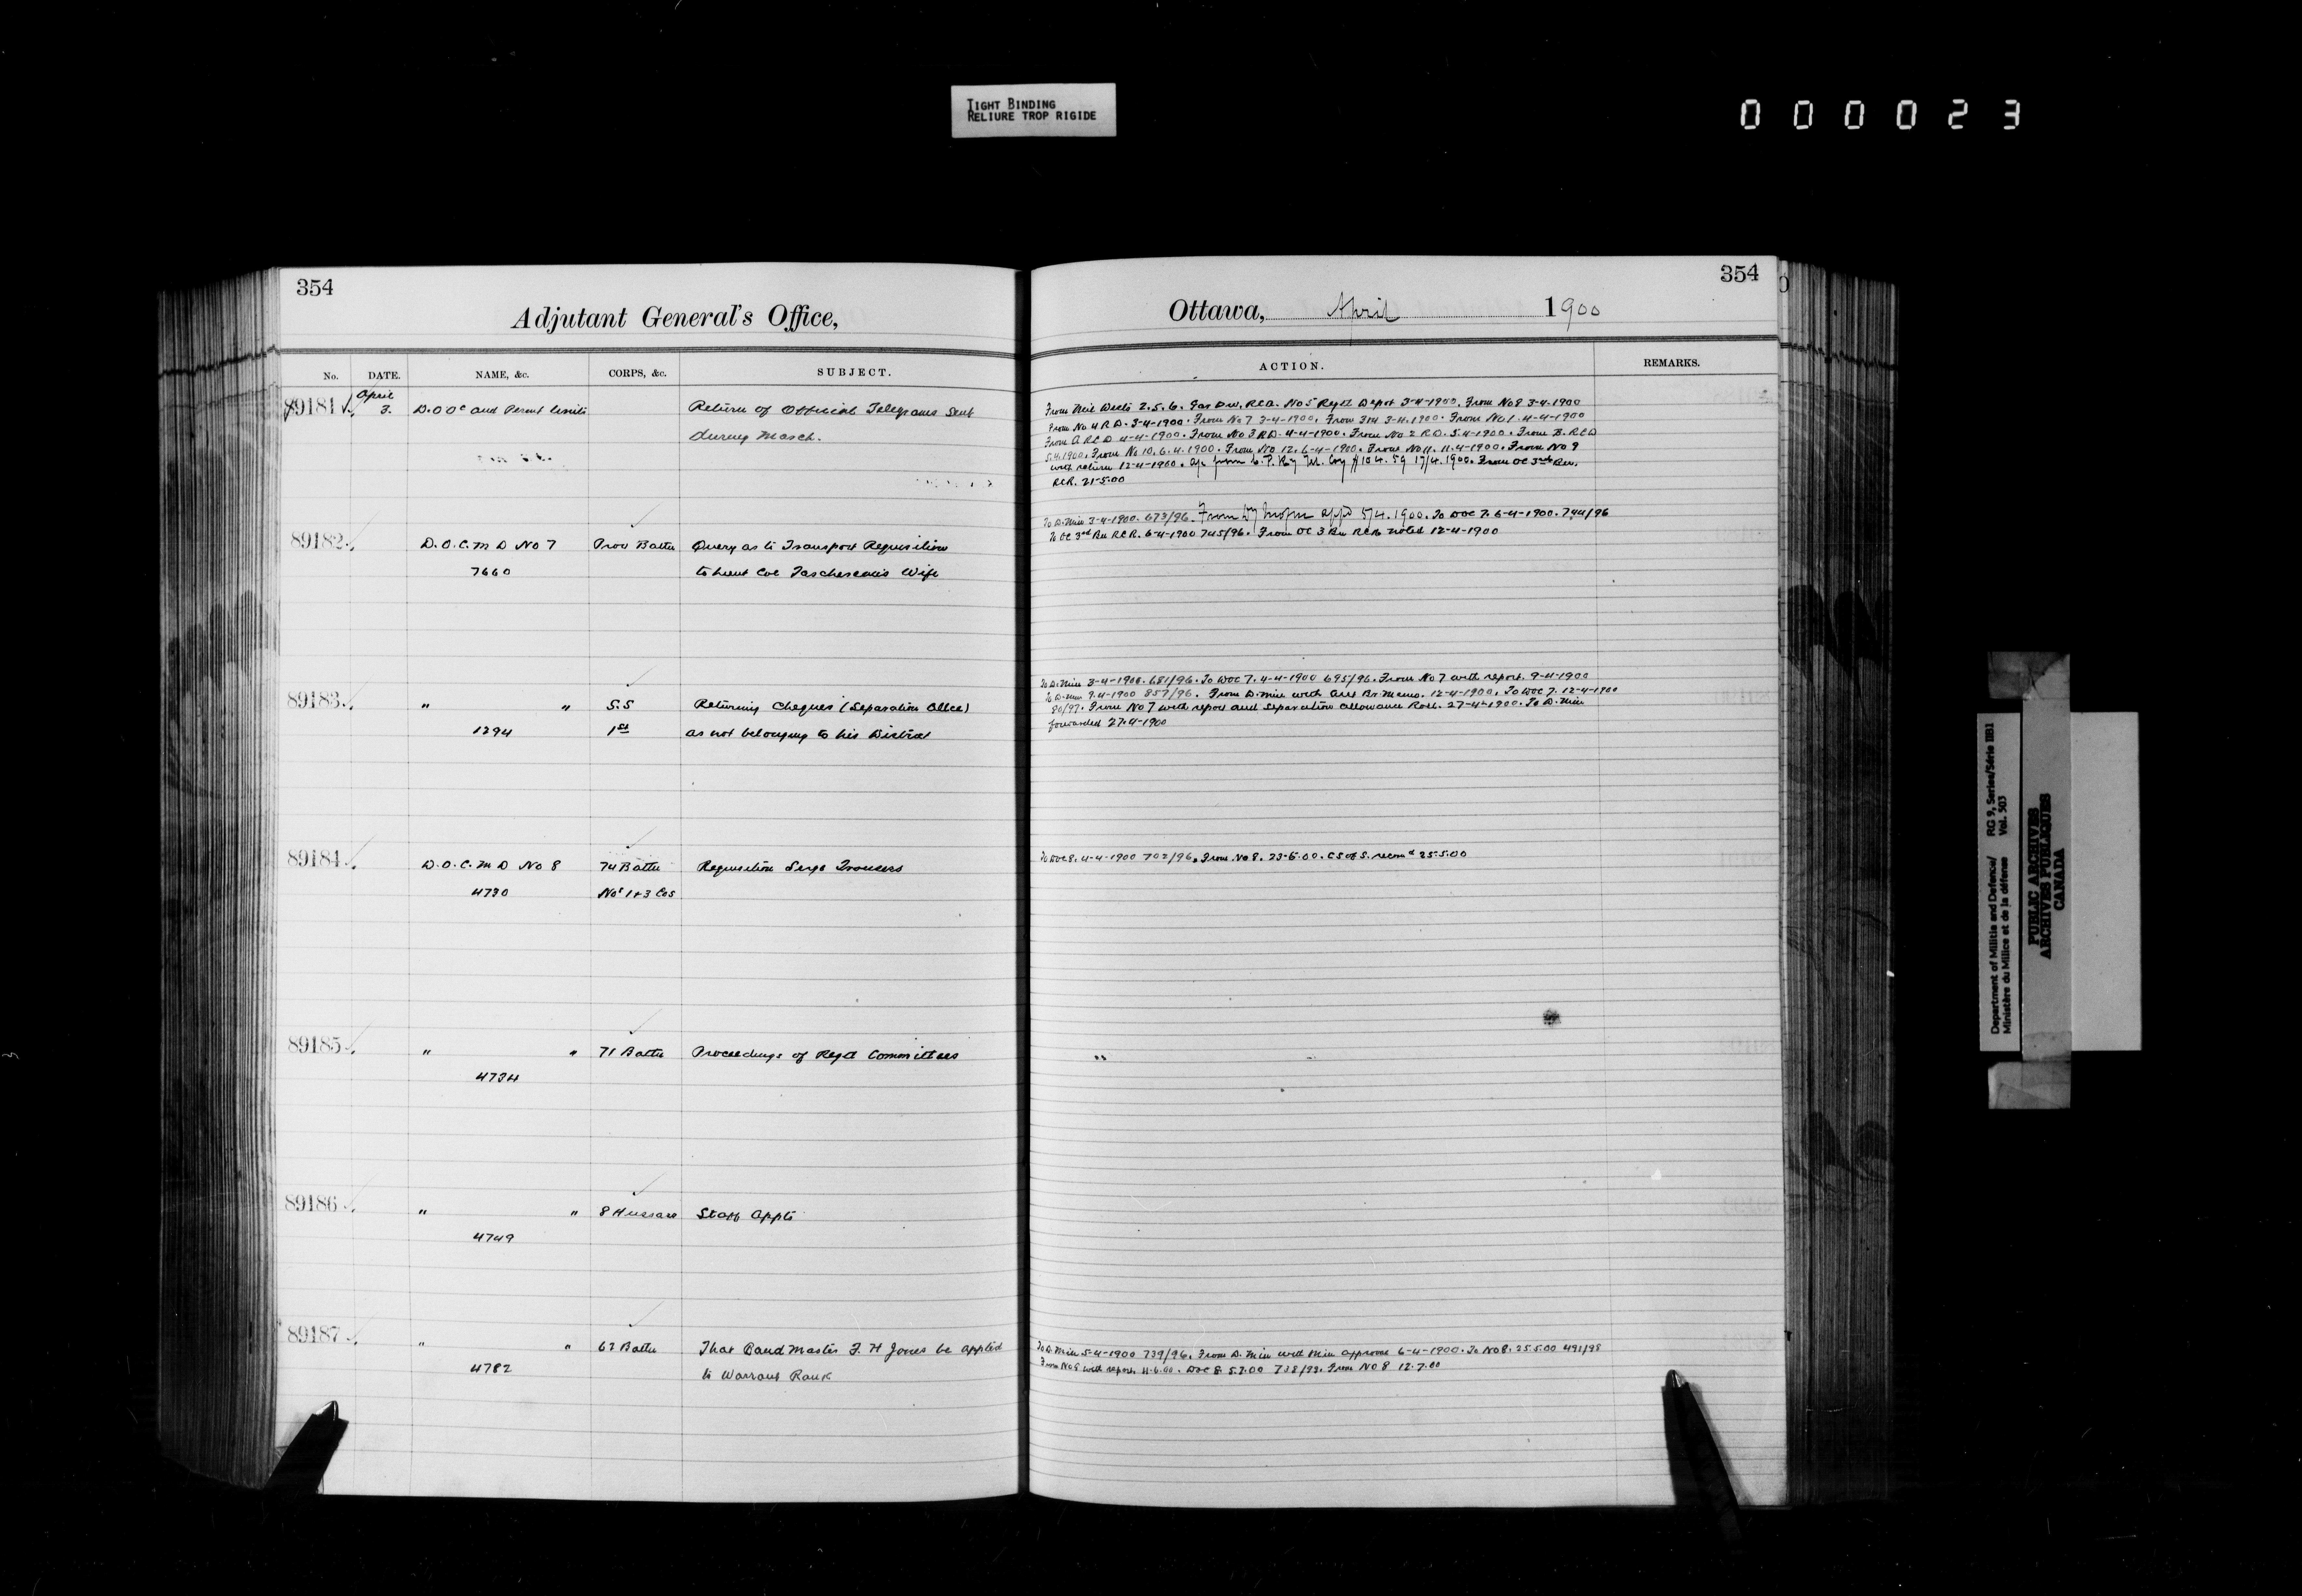 TIGHT BINDING
RELIURE TROP RIGIDE
000023
354
Adjutant General's Office,
No. DATE. NAME, &c. CORPS, &c. SUBJECT.
April
89181 3. D.O.Cs and Perm't Units Return of Official Telegrams Sent
during March.
89182 D.O.C. M D No 7 Prov Battn Query as to Transport Requisition
7660 to Lieut Col Taschereau's Wife
89183 " " S.S Returning Cheques (Separation Allce)
1294 1st as not belonging to his District
89184 D.O.C. M D No 8 74 Battn Requisition Serge Trousers
4730 Nos 1+3 Cos
89185 " " 71 Battn Proceedings of Regtl Committees
4734
89186 " " 8 Hussars Staff Appts
4749
89187 " " 62 Battn That Bandmaster F. H Jones be appted
4782 to Warrant Rank
354
Ottawa, April 1900
ACTION. REMARKS.
From Mil Dists 2.5.6. Gar Div. RCA. No 5 Regtl Depot 3-4-1900. From No 8 3-4-1900
From No 4 R D. 3-4-1900. From No 7 3-4-1900. From 3-4-1900. From No 1. 4-4-1900
From A RCD 4-4-1900. From No 3 RD. 4-4-1900. From No 2 R.D. 5.4-1900. From B. RCD
5.4.1900. From No 10. 6.4.1900. From No 12. 6-4-1900. From No 11. 11.4-1900. From No 9
with return 12-4-1900. from C. P. Ry Tel. Coy $104.59 17/4.1900. From OC 3rd Bn.
RCR. 21-5.00
To D. Min 3-4-1900. 673/96. From appd 5/4.1900. To DOC 7. 6-4-1900. 744/96
To OC 3rd Bn RCR. 6-4-1900 745/96. From OC 3 Bn RCR noted 12-4-1900
To D. Min 3-4-1900. 681/96. To DOC 7. 4-4-1900 695/96. From No 7 with report. 9-4-1900
To D. Min 9.4-1900 857/96. From D. Min with Memo. 12-4-1900. To DOC 7. 12-4-1900
80/97. From No 7 with report and separation allowance Roll. 27-4-1900. To D. Min
forwarded 27.4-1900
To DOC 8. 4-4-1900 702/96. From No 8. 23-5.00. C S of S. recomd 25.5.00
"
To D. Min 5-4-1900 739/96. From D. Min with Min approval 6-4-1900. To No 8. 25.5.00 491/98
From No 8 with report. 4.6.00. DOC 8. 5.7.00 738/99. From No 8 12.7.00
Department of Militia and Defence/ RG 9, Series/Série IIB1
Ministère du Milice et de la défense Vol. 503
PUBLIC ARCHIVES
ARCHIVES PUBLIQUES
CANADA